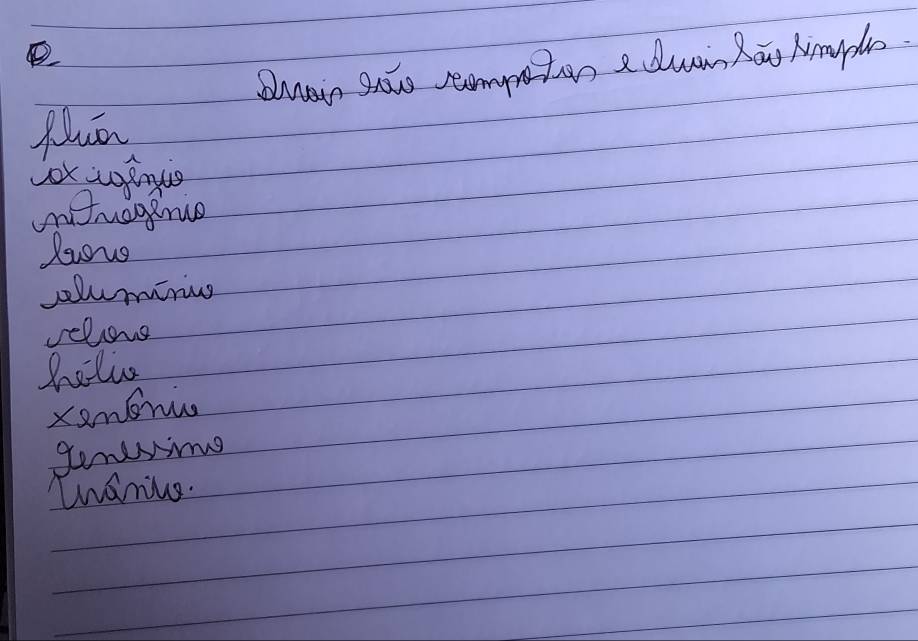 Quais são compostas e Quais são simples.
flúor
oxigênio
nitrogênio
boro
alumínio
cloro
hélio
xenônio
Urânio.